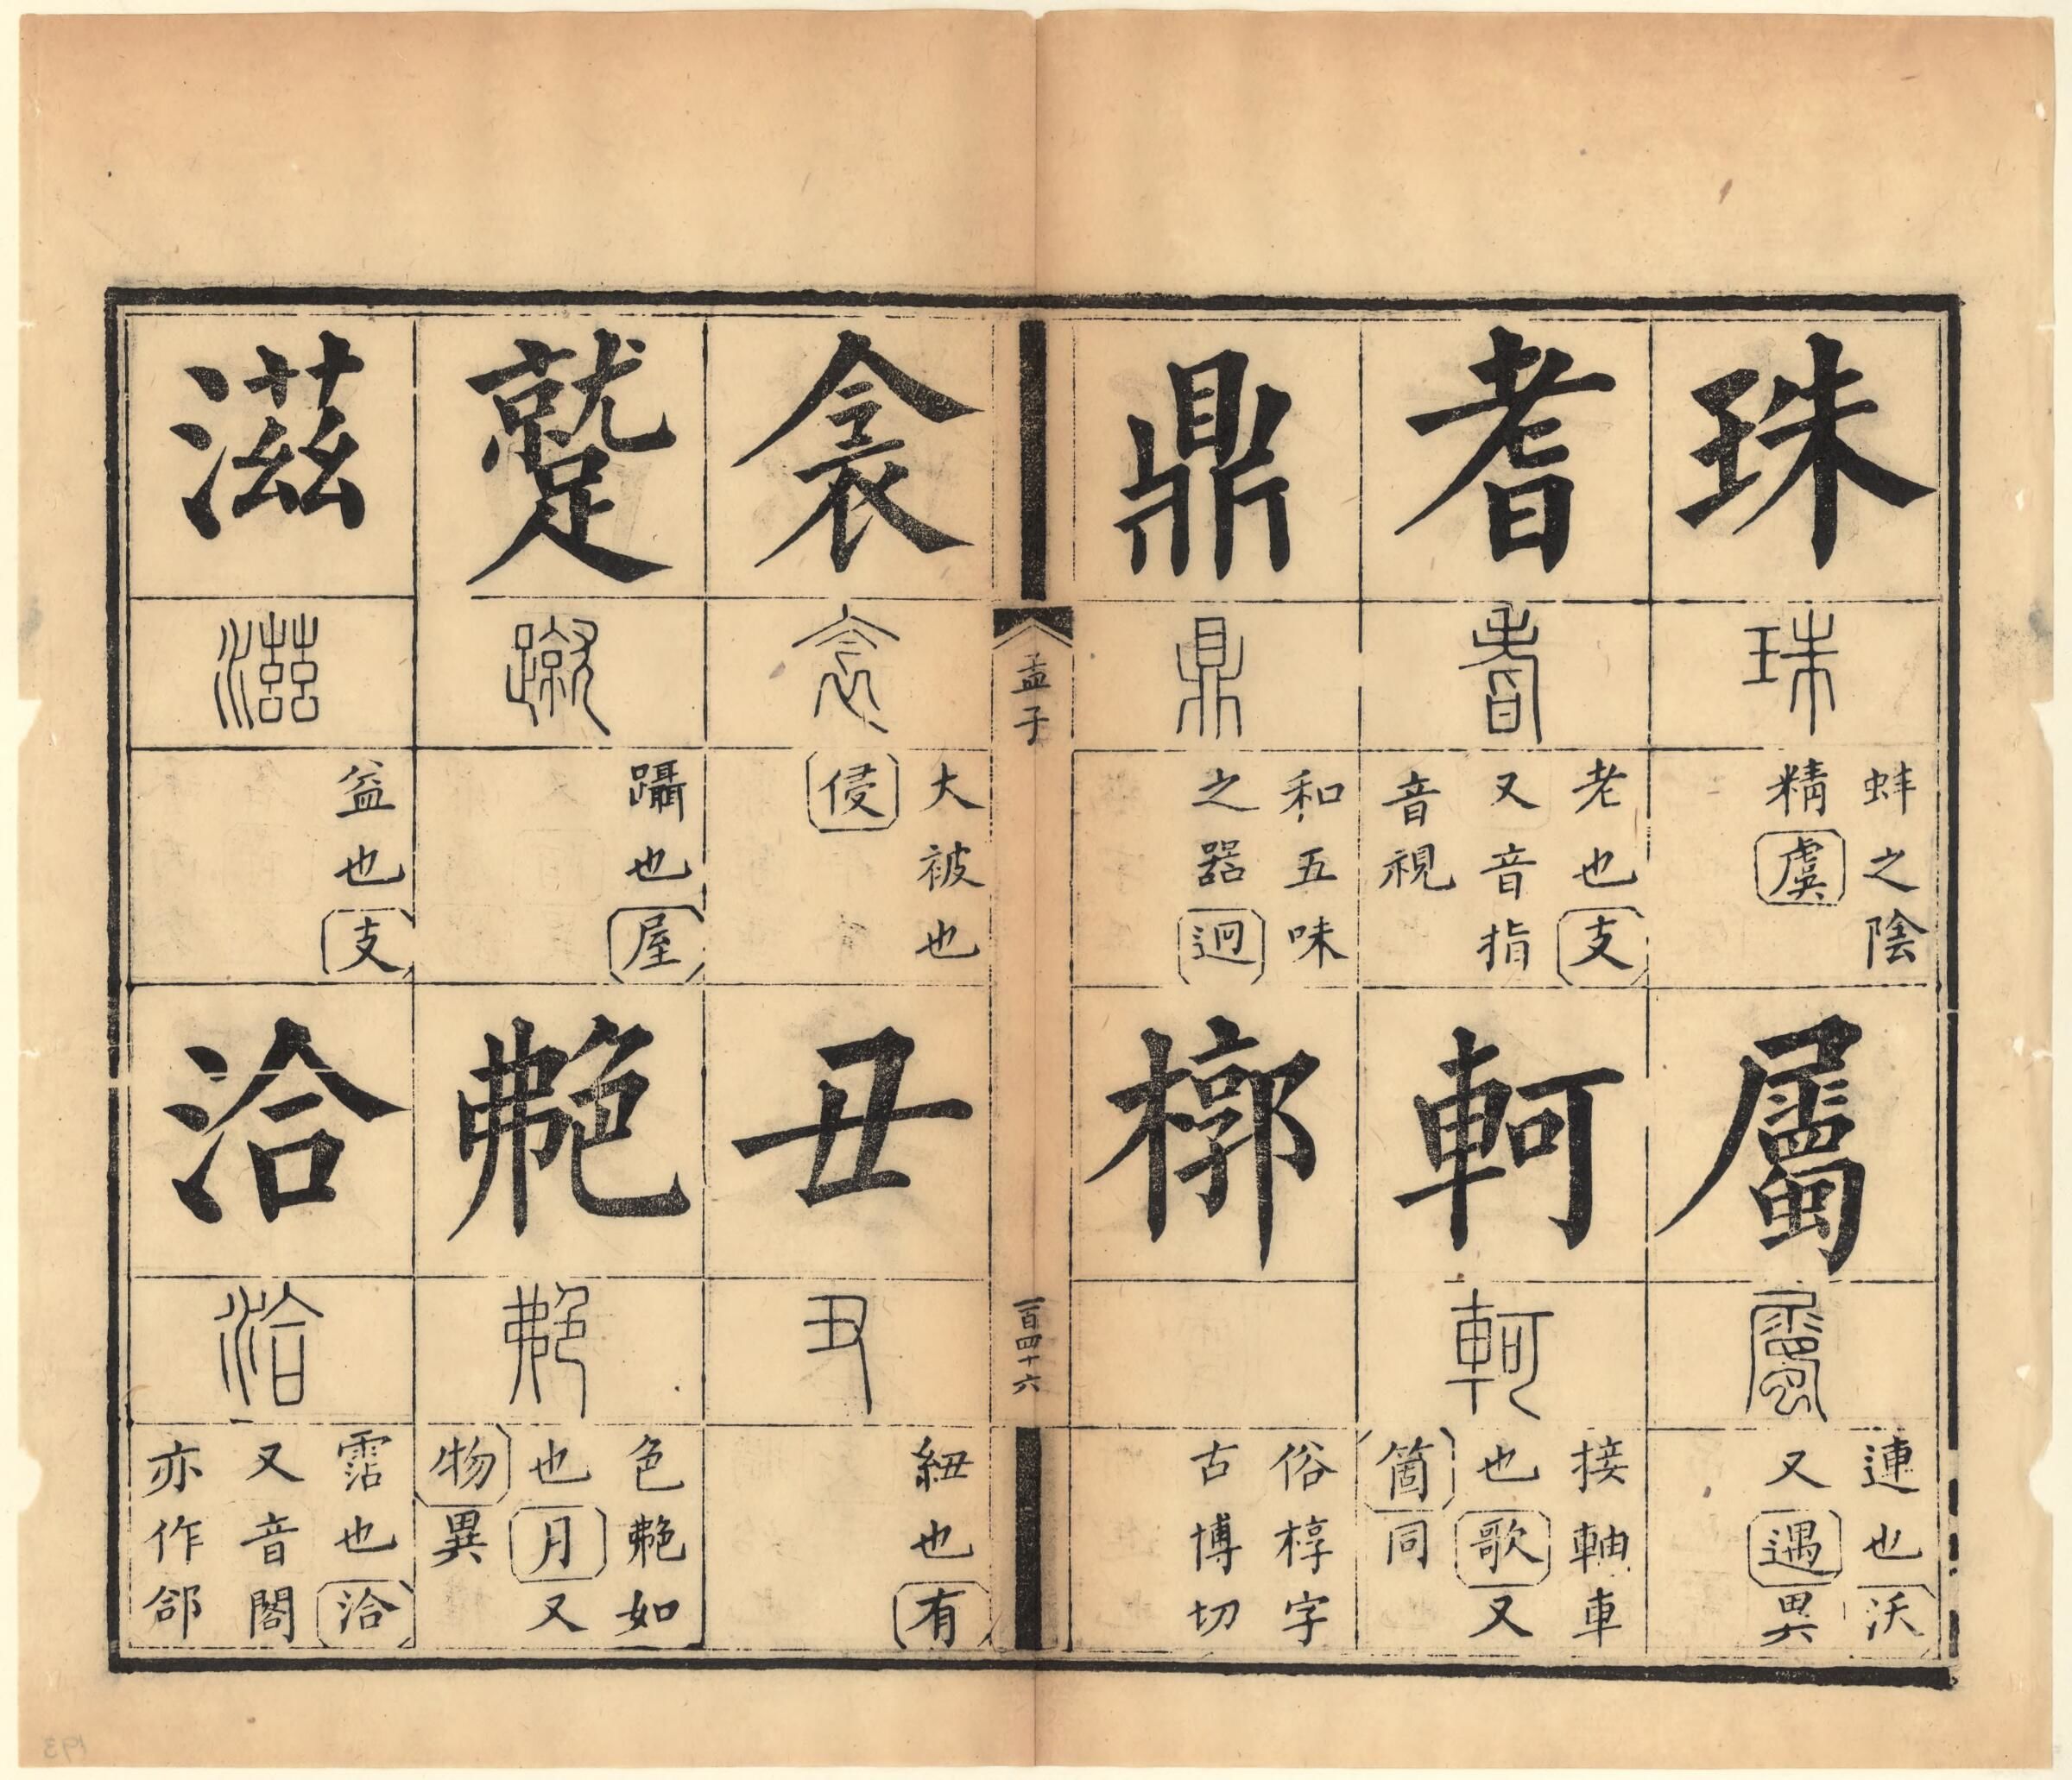 珠
珠
蚌之陰
精虞
屬
屬
連也沃
又遇異
耆
耆
老也支
又音指
音視
軻
軻
接軸車
也歌又
箇同
鼎
鼎
和五味
之器逈
槨
俗椁字
古博切
孟子
一百四十六
衾
衾
大被也
侵
丑
丑
紐也有
蹵
蹴
躡也屋
艴
艴
色艴如
也月又
物異
滋
滋
益也支
洽
洽
霑也洽
又音閤
亦作郃
193